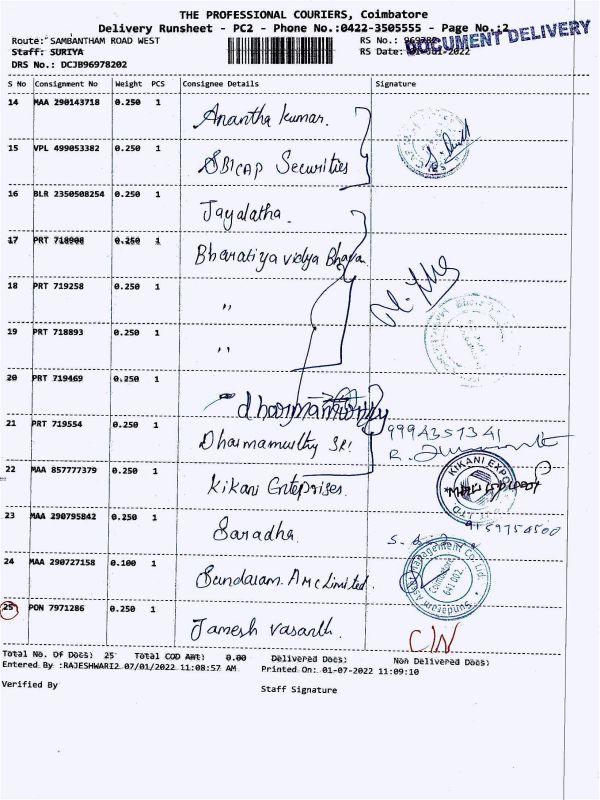 THE PROFESSIONAL COURIERS, Coimbatore
Delivery Runsheet - PC2 - Phone No.:0422-3505555 - Page No.:2
DOCUMENT DELIVERY
Route: SAMBANTHAM ROAD WEST RS No.:
Staff: SURIYA RS Date:
DRS No.: DCJB96978202
S No Consignment No Weight PCS Consignee Details Signature
14 MAA 290143718 0.250 1 Anantha Kumar.
15 VPL 499053382 0.250 1 SBICAP Securities
16 BLR 2350508254 0.250 1 Jayalatha.
17 PRT 718908 0.250 1 Bharatiya vidya Bhavan
18 PRT 719258 0.250 1 "
19 PRT 718893 0.250 1 "
20 PRT 719469 0.250 1 dharmamurthy
21 PRT 719554 0.250 1 Dharmamurthy SRI. 9994357341
22 MAA 857777379 0.250 1 Kikani Enteprises. KIKANI
9159754500
23 MAA 290795842 0.250 1 Saradha.
24 MAA 290727158 0.100 1 Sundaram AMC Limited. Sundaram Asset Management Co. Ltd. Coimbatore 641 002.
25 PON 7971286 0.250 1 Jamesh vasanth. C/N
Total No. Of Docs: 25 Total COD Amt: 0.00 Delivered Docs: Non Delivered Docs:
Entered By :RAJESHWARI2 07/01/2022 11:08:57 AM Printed On: 01-07-2022 11:09:10
Verified By
Staff Signature